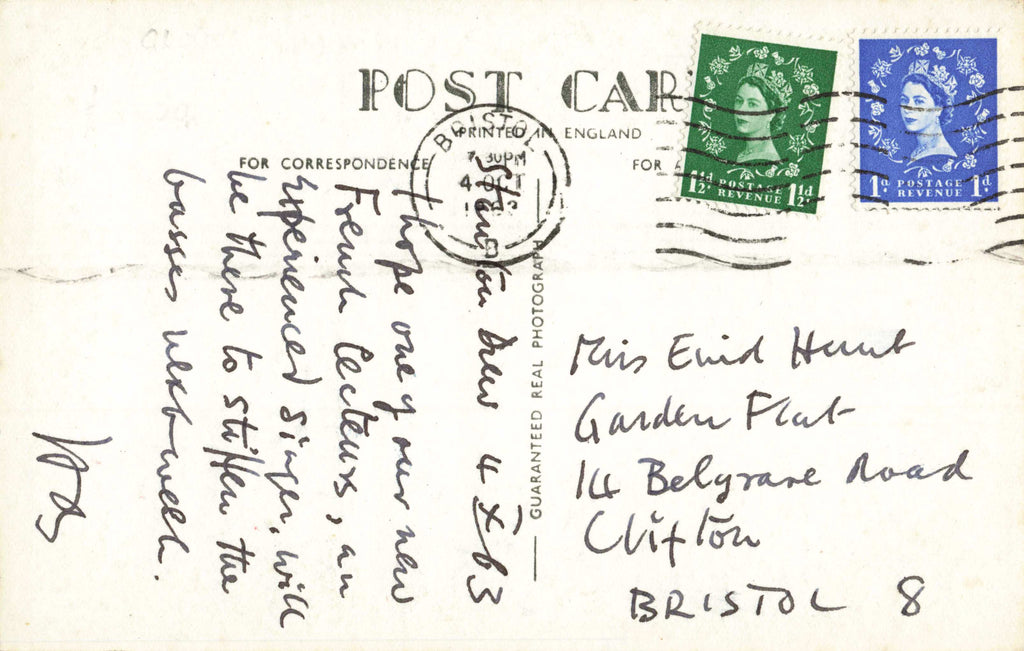 POST CAR
PRINTED IN ENGLAND
FOR CORRESPONDENCE
FOR A
BRISTOL
7.30PM
4 OCT
GUARANTEED REAL PHOTOGRAPH
1½d POSTAGE REVENUE 1½d
1d POSTAGE REVENUE 1d
Stanton Drew 4 X 63
I hope one of our new
French Lecteurs, an
experienced singer, will
be there to stiffen the
basses next week.
Miss Enid Hunt
Garden Flat
14 Belgrave Road
Clifton
BRISTOL 8